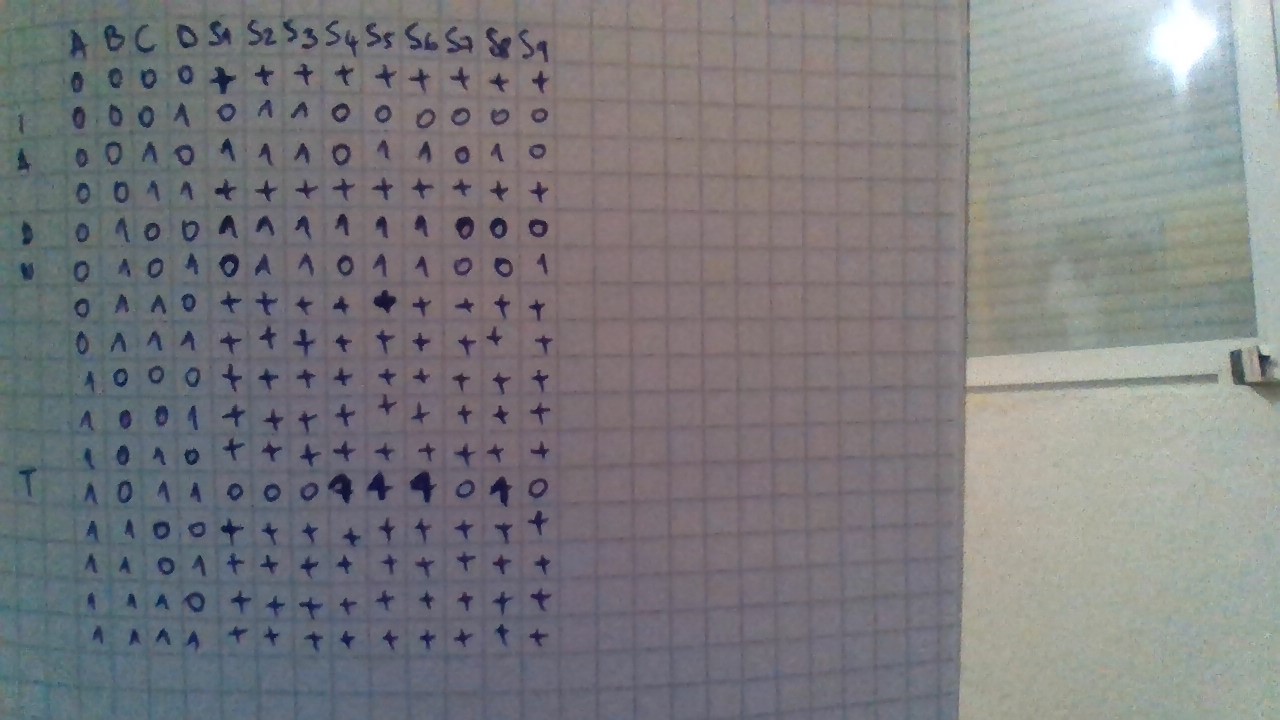 A B C D S1 S2 S3 S4 S5 S6 S7 S8 S9
0 0 0 0 + + + + + + + + +
I 0 0 0 1 0 1 1 0 0 0 0 0 0
A 0 0 1 0 1 1 1 0 1 1 0 1 0
0 0 1 1 + + + + + + + + +
D 0 1 0 0 1 1 1 1 1 1 0 0 0
N 0 1 0 1 0 1 1 0 1 1 0 0 1
0 1 1 0 + + + + + + + + +
0 1 1 1 + + + + + + + + +
1 0 0 0 + + + + + + + + +
1 0 0 1 + + + + + + + + +
1 0 1 0 + + + + + + + + +
T 1 0 1 1 0 0 0 1 1 1 0 1 0
1 1 0 0 + + + + + + + + +
1 1 0 1 + + + + + + + + +
1 1 1 0 + + + + + + + + +
1 1 1 1 + + + + + + + + +